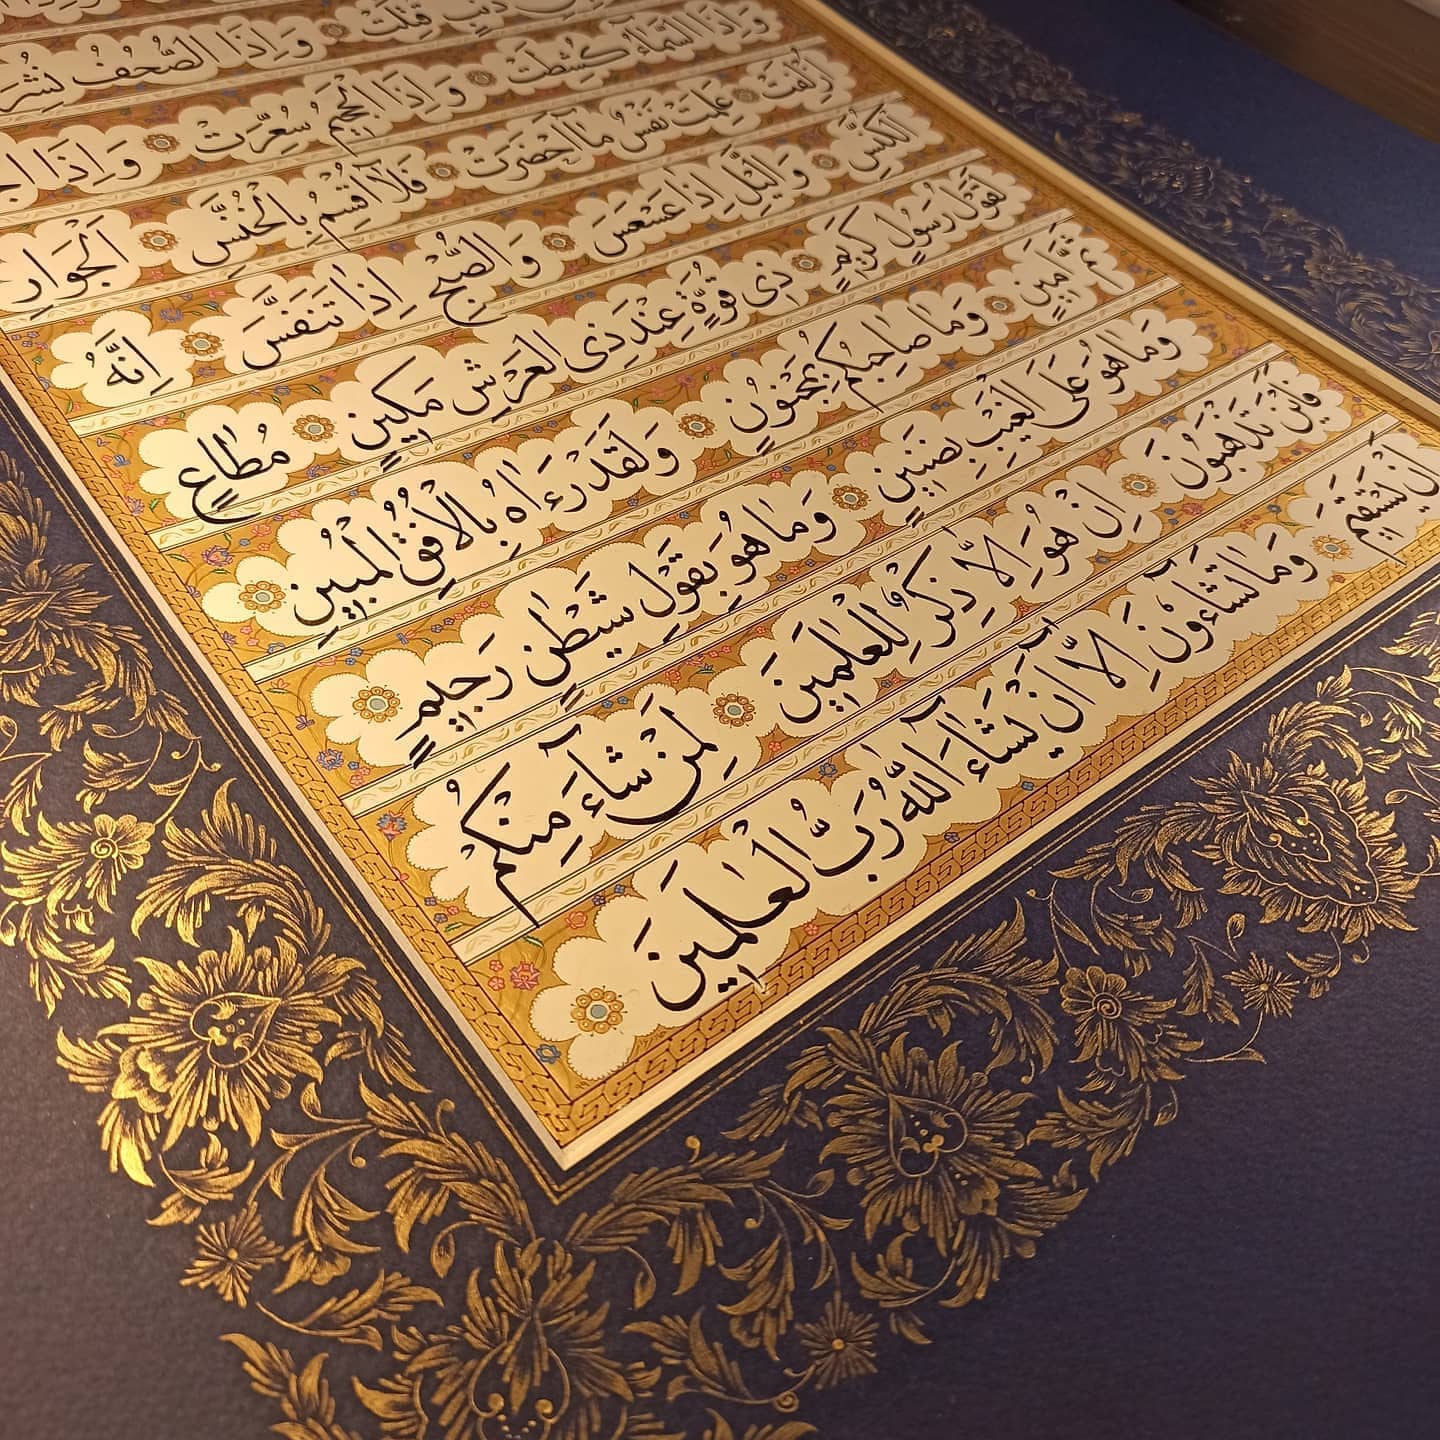 ذَنْبٍ قُتِلَتْ وَاِذَا الصُّحُفُ
وَاِذَا السَّمَٓاءُ كُشِطَتْ وَاِذَا الْجَح۪يمُ سُعِّرَتْ وَاِذَا
اُزْلِفَتْ عَلِمَتْ نَفْسٌ مَٓا اَحْضَرَتْ فَلَٓا اُقْسِمُ بِالْخُنَّسِ اَلْجَوَارِ
الْكُنَّسِ وَالَّيْلِ اِذَا عَسْعَسَ وَالصُّبْحِ اِذَا تَنَفَّسَ اِنَّهُ
لَقَوْلُ رَسُولٍ كَر۪يمٍ ذ۪ى قُوَّةٍ عِنْدَ ذِى الْعَرْشِ مَك۪ينٍ مُطَاعٍ
ثَمَّ اَم۪ينٍ وَمَا صَاحِبُكُمْ بِمَجْنُونٍ وَلَقَدْ رَءَاهُ بِالْاُفُقِ الْمُب۪ينِ
وَمَا هُوَ عَلَى الْغَيْبِ بِضَن۪ينٍ وَمَا هُوَ بِقَوْلِ شَيْطٰنٍ رَج۪يمٍ
فَاَيْنَ تَذْهَبُونَ اِنْ هُوَ اِلَّا ذِكْرٌ لِلْعَالَم۪ينَ لِمَنْ شَٓاءَ مِنْكُمْ
اَنْ يَسْتَق۪يمَ وَمَا تَشَٓاءُونَ اِلَّٓا اَنْ يَشَٓاءَ اللّٰهُ رَبُّ الْعَالَم۪ينَ